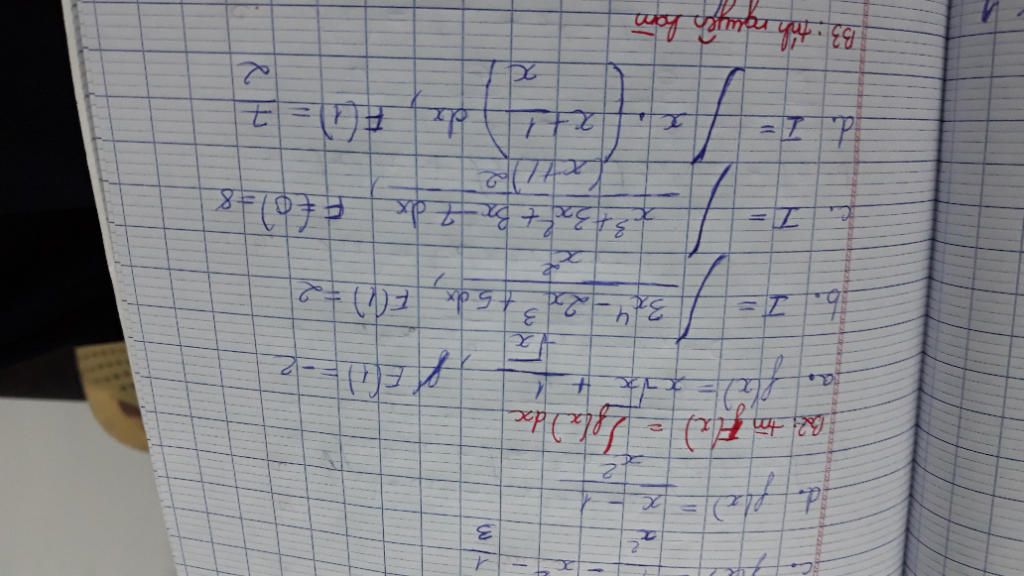 c. f(x) = 1/x² - x² - 1/3
d. f(x) = (x - 1)/x²
B2: tìm F(x) = ∫g(x)dx
a. f(x) = x√x + 1/√x, F(1) = -2
b. I = ∫ (3x⁴ - 2x³ + 5)/x² dx, F(1) = 2
c. I = ∫ (x³ + 3x² + 3x - 7)/(x+1)² dx, F(0) = 8
d. I = ∫ x . (x + 1/x) dx, F(1) = 7/2
B3: tính nguyên hàm